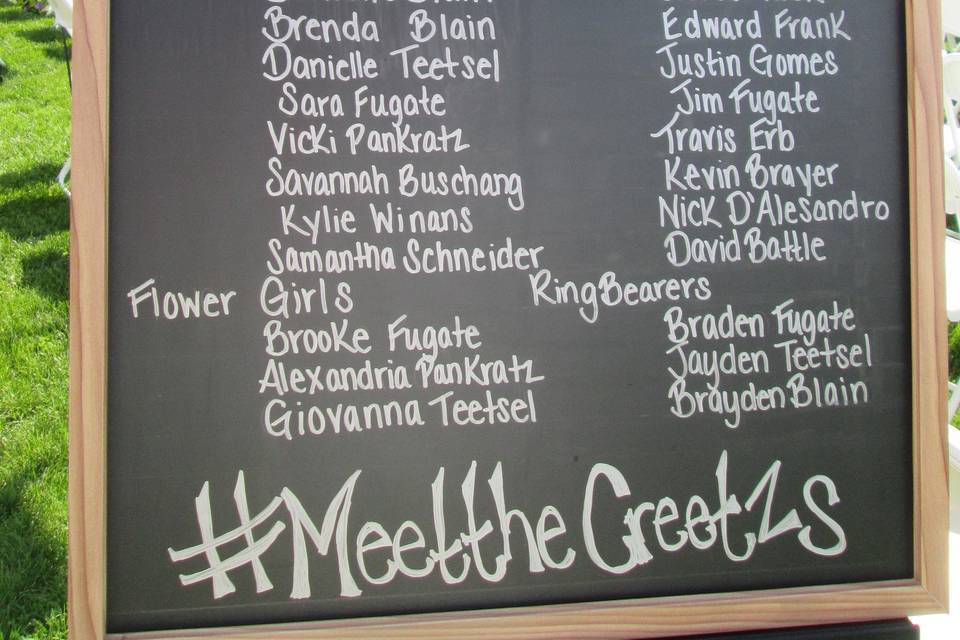 Blain
Brenda Blain
Danielle Teetsel
Sara Fugate
Vicki Pankratz
Savannah Buschang
Kylie Winans
Samantha Schneider
Flower Girls
Brooke Fugate
Alexandria Pankratz
Giovanna Teetsel
Edward Frank
Justin Gomes
Jim Fugate
Travis Erb
Kevin Brayer
Nick D'Alesandro
David Battle
Ring Bearers
Braden Fugate
Jayden Teetsel
Brayden Blain
#MeettheCreetzs